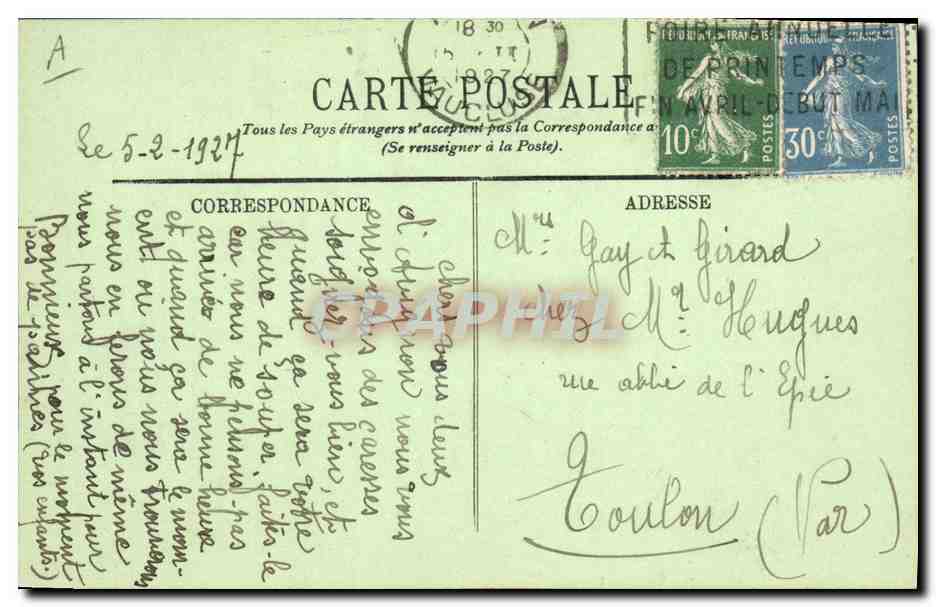 A
18 30
1927
VAUCLUSE
FOIRE ANNUELLE
DE PRINTEMPS
FIN AVRIL-DEBUT MAI
REPUBLIQUE FRANÇAISE
10c
POSTES
REPUBLIQUE FRANÇAISE
30c
POSTES
CARTE POSTALE
Tous les Pays étrangers n'acceptent pas la Correspondance a
(Se renseigner à la Poste).
Le 5-2-1927
CORRESPONDANCE
ADRESSE
Chers vous deux
d'Avignon nous vous
envoyons des caresses
soignez-vous bien, et
quand ça sera votre
heure de souper, faites-le
car nous ne pensons-pas
arrivés de bonne heure
et quand ça sera le mom-
ent ou nous nous trouverons
nous en ferons de même
nous partons à l'instant pour
Bonnieux, pour le moment
pas de pannes (vos enfants.)
Mrs Gay et Girard
chez Mr Hugues
rue abbé de l'Epée
Toulon (Var)
CPAPHIL